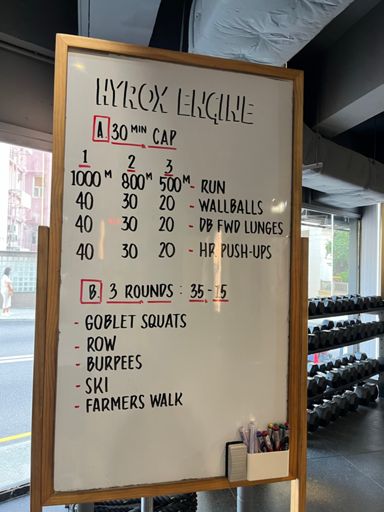 HYROX ENGINE
A. 30 MIN CAP
1 2 3
1000M 800M 500M - RUN
40 30 20 - WALLBALLS
40 30 20 - DB FWD LUNGES
40 30 20 - HR PUSH-UPS
B. 3 ROUNDS : 35-15
- GOBLET SQUATS
- ROW
- BURPEES
- SKI
- FARMERS WALK